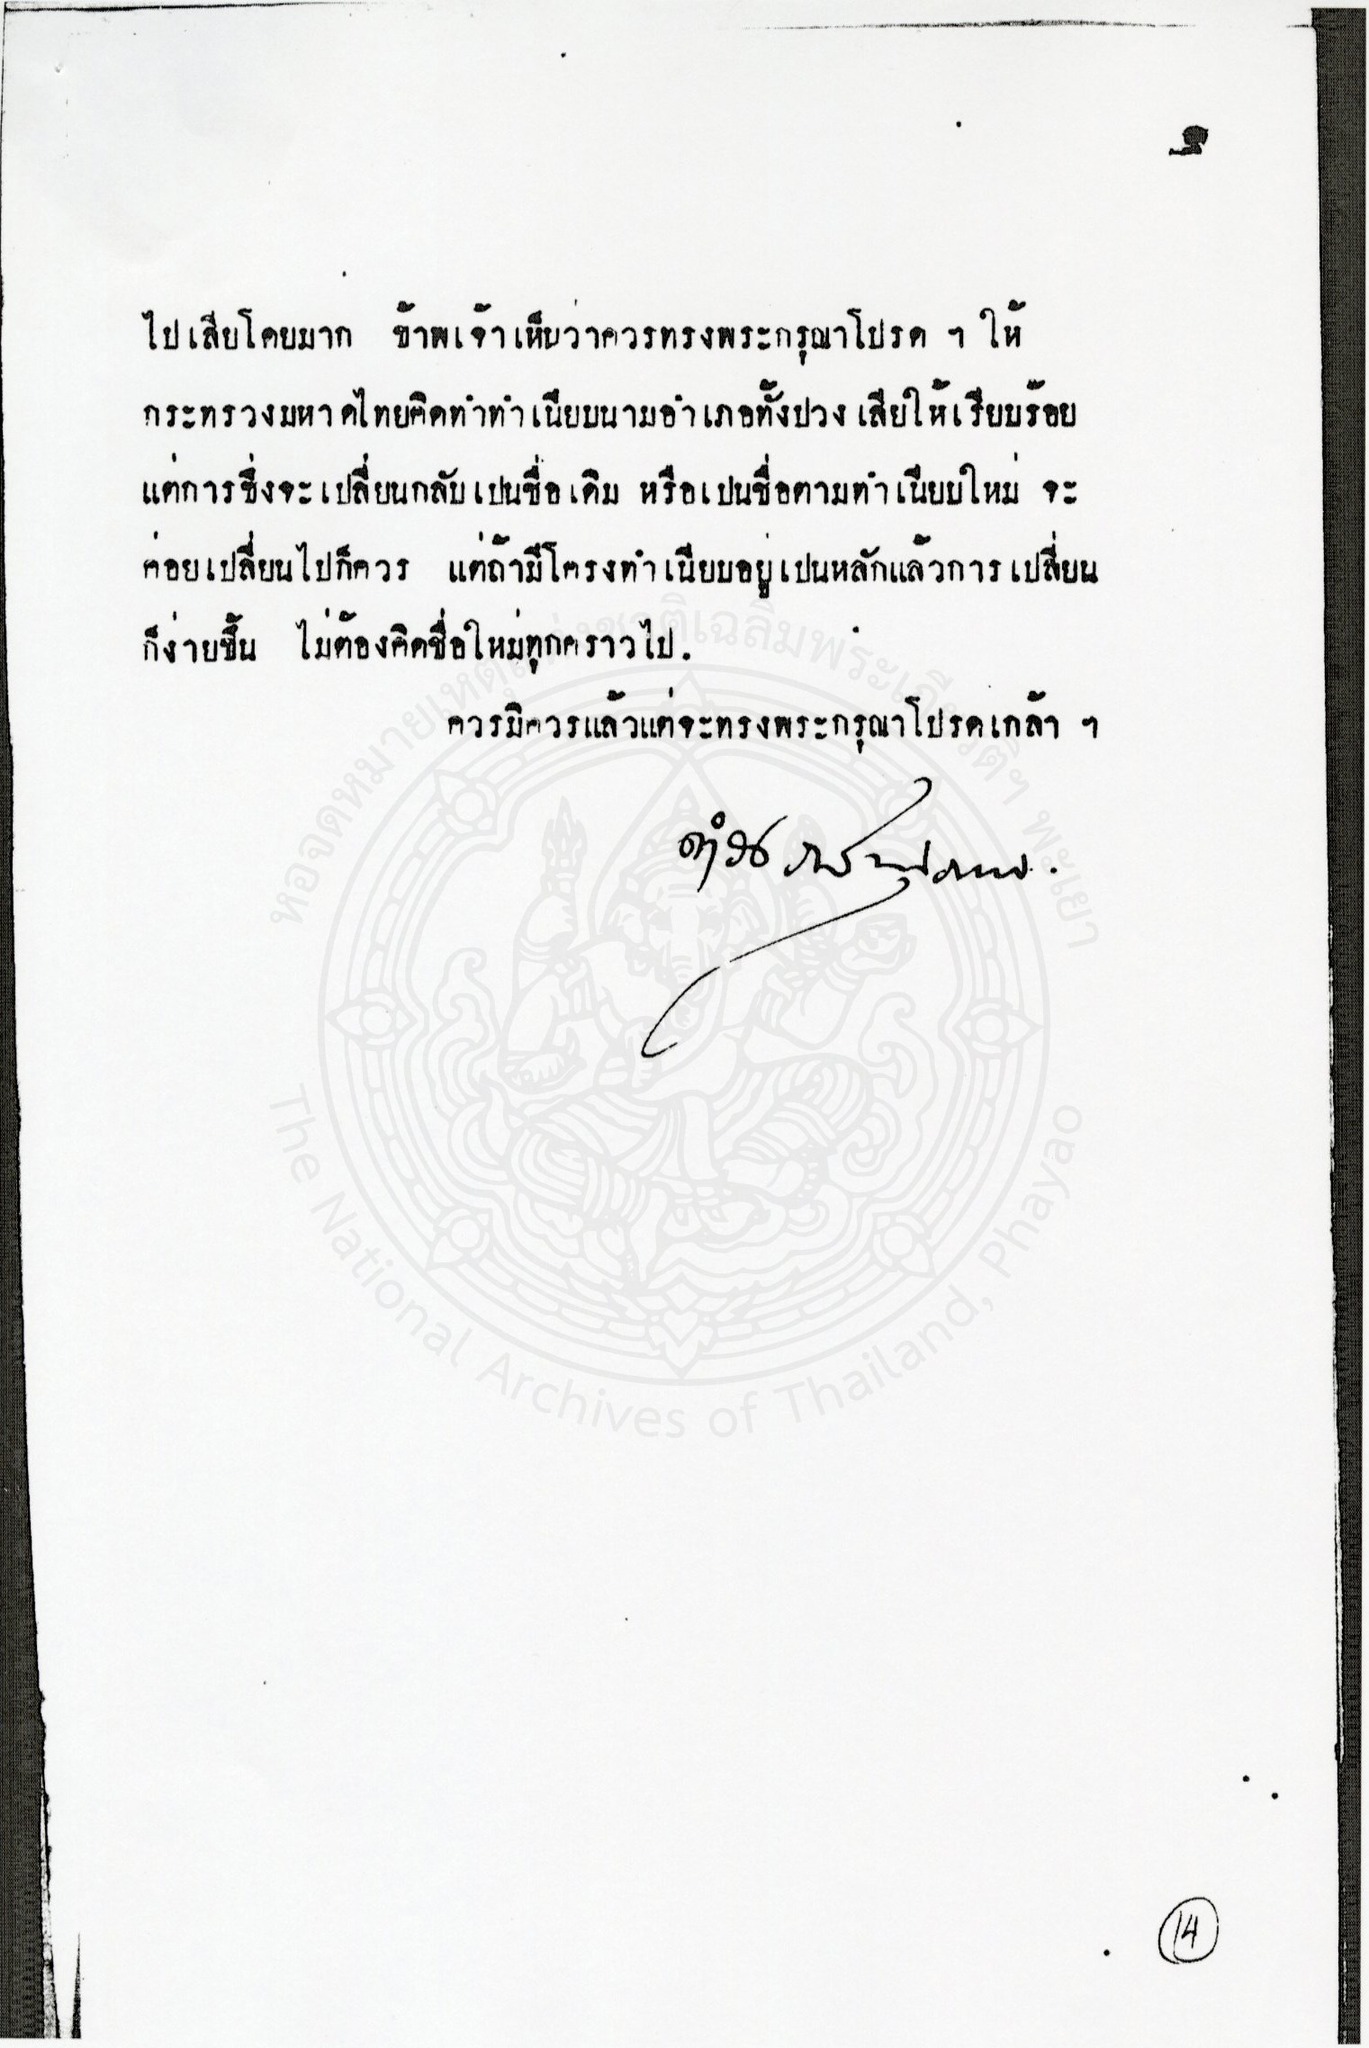 ไปเสียโดยมาก ข้าพเจ้าเห็นว่าควรทรงพระกรุณาโปรด ฯ ให้
กระทรวงมหาดไทยคิดทำทำเนียบนามอำเภอทั้งปวงเสียให้เรียบร้อย
แต่การซึ่งจะเปลี่ยนกลับเปนชื่อเดิม หรือเปนชื่อตามทำเนียบใหม่ จะ
ค่อยเปลี่ยนไปก็ควร แต่ถ้ามีโครงทำเนียบอยู่เปนหลักแล้วการเปลี่ยน
ก็ง่ายขึ้น ไม่ต้องคิดชื่อใหม่ทุกคราวไป.
ควรมิควรแล้วแต่จะทรงพระกรุณาโปรดเกล้า ฯ
หอจดหมายเหตุแห่งชาติเฉลิมพระเกียรติฯ พะเยา
The National Archives of Thailand, Phayao
14